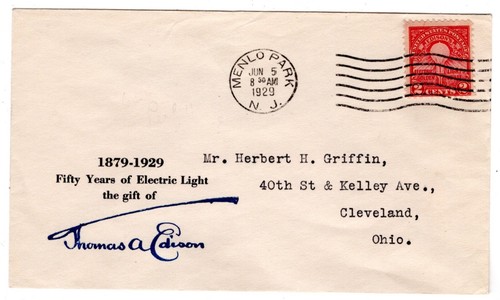 MENLO PARK
JUN 5
8 30 AM
1929
N. J.
UNITED STATES POSTAGE
2 CENTS 2
1879-1929
Fifty Years of Electric Light
the gift of
Thomas A Edison
Mr. Herbert H. Griffin,
40th St & Kelley Ave.,
Cleveland,
Ohio.